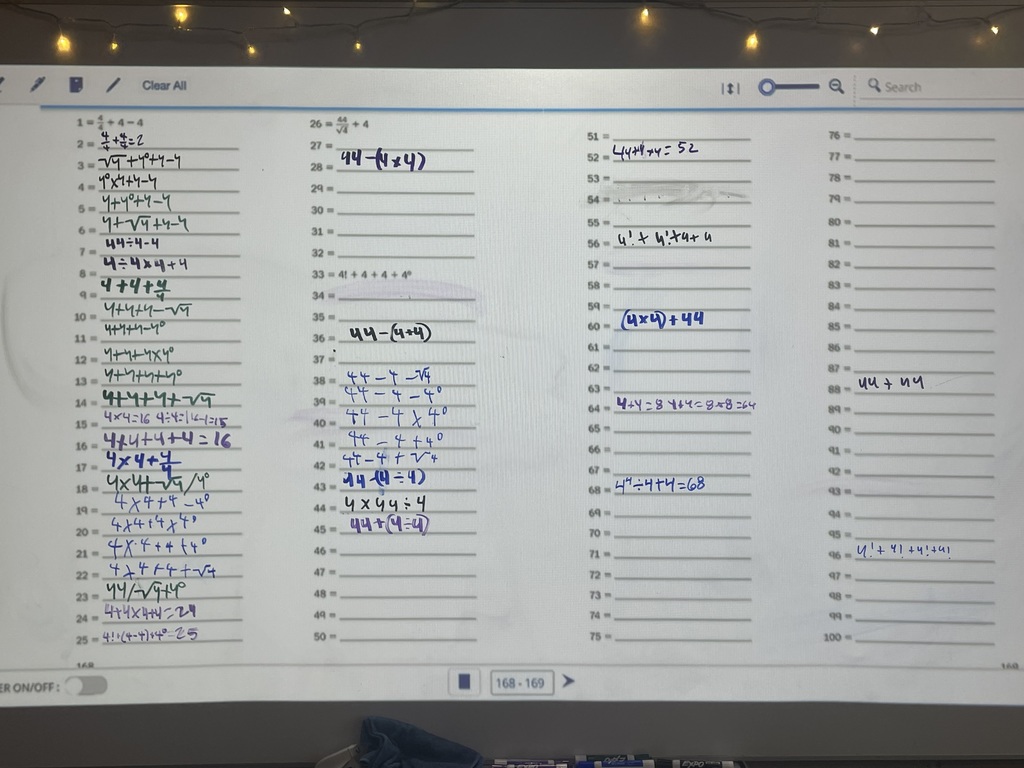 Clear All
Search
1 = 4/4 + 4 - 4
2 = 4/4 + 4/4 = 2
3 = √4 + 4⁰ + 4 - 4
4 = 4⁰ x 4 + 4 - 4
5 = 4 + 4⁰ + 4 - 4
6 = 4 + √4 + 4 - 4
7 = 44 ÷ 4 - 4
8 = 4 ÷ 4 x 4 + 4
9 = 4 + 4 + 4/4
10 = 4 + 4 + 4 - √4
11 = 4 + 4 + 4 - 4⁰
12 = 4 + 4 + 4 x 4⁰
13 = 4 + 4 + 4 + 4⁰
14 = 4 + 4 + 4 + √4
15 = 4 x 4 = 16 4 ÷ 4 = 1 16 - 1 = 15
16 = 4 + 4 + 4 + 4 = 16
17 = 4 x 4 + 4/4
18 = 4 x 4 + √4 / 4⁰
19 = 4 x 4 + 4 - 4⁰
20 = 4 x 4 + 4 x 4⁰
21 = 4 x 4 + 4 + 4⁰
22 = 4 x 4 + 4 + √4
23 = 44 / √4 + 4⁰
24 = 4 + 4 x 4 + 4 = 24
25 = 4! + (4 - 4) + 4⁰ = 25
168
26 = 44/√4 + 4
27 =
28 = 44 - (4 x 4)
29 =
30 =
31 =
32 =
33 = 4! + 4 + 4 + 4⁰
34 =
35 =
36 = 44 - (4 + 4)
37 =
38 = 44 - 4 - √4
39 = 44 - 4 - 4⁰
40 = 44 - 4 x 4⁰
41 = 44 - 4 + 4⁰
42 = 44 - 4 + √4
43 = 44 - (4 ÷ 4)
44 = 4 x 44 ÷ 4
45 = 44 + (4 ÷ 4)
46 =
47 =
48 =
49 =
50 =
51 =
52 = 44 + 4 + 4 = 52
53 =
54 =
55 =
56 = 4! + 4! + 4 + 4
57 =
58 =
59 =
60 = (4 x 4) + 44
61 =
62 =
63 =
64 = 4 + 4 = 8 4 + 4 = 8 x 8 = 64
65 =
66 =
67 =
68 = 4⁴ ÷ 4 + 4 = 68
69 =
70 =
71 =
72 =
73 =
74 =
75 =
76 =
77 =
78 =
79 =
80 =
81 =
82 =
83 =
84 =
85 =
86 =
87 =
88 = 44 + 44
89 =
90 =
91 =
92 =
93 =
94 =
95 =
96 = 4! + 4! + 4! + 4!
97 =
98 =
99 =
100 =
169
ER ON/OFF :
168 - 169